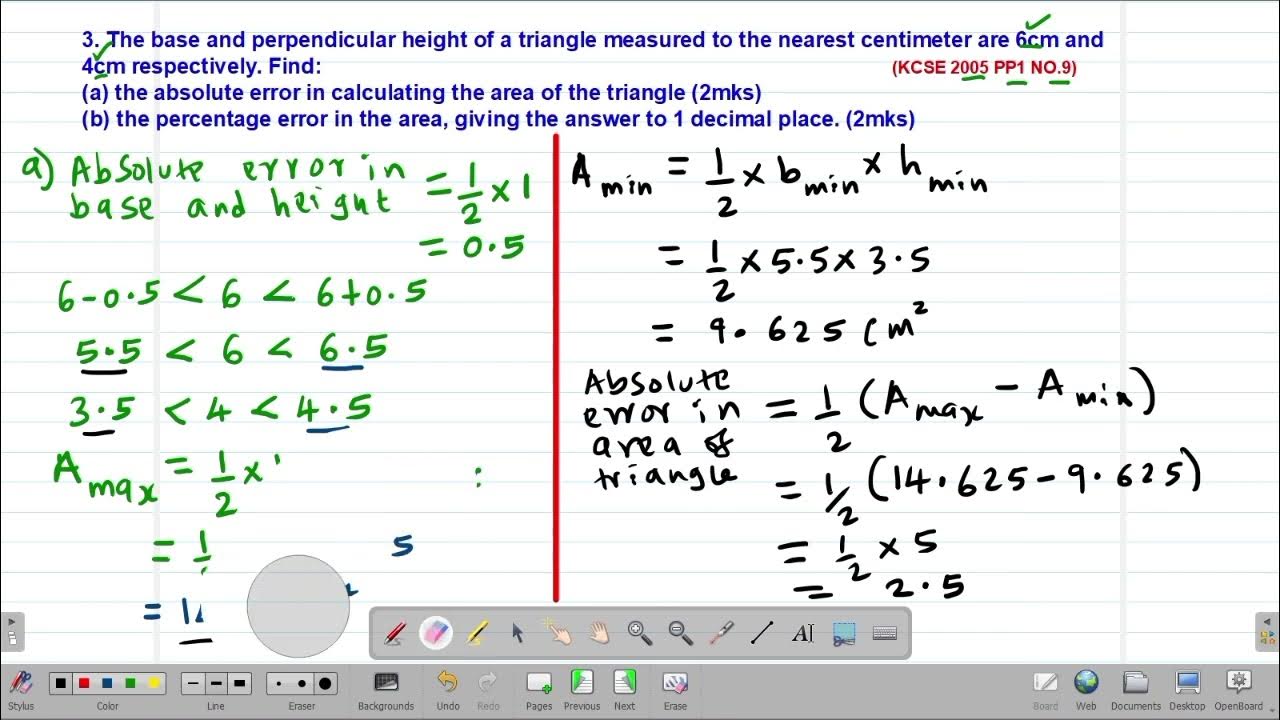 3. The base and perpendicular height of a triangle measured to the nearest centimeter are 6cm and
4cm respectively. Find:
(KCSE 2005 PP1 NO.9)
(a) the absolute error in calculating the area of the triangle (2mks)
(b) the percentage error in the area, giving the answer to 1 decimal place. (2mks)
a) Absolute error in
base and height
= 1/2 × 1
= 0.5
6-0.5 < 6 < 6+0.5
5.5 < 6 < 6.5
3.5 < 4 < 4.5
A max = 1/2 ×
= 1
5
= 1
A min = 1/2 × b min × h min
= 1/2 × 5.5 × 3.5
= 9.625 cm²
Absolute
error in
area of
triangle
= 1/2 (A max - A min)
= 1/2 (14.625 - 9.625)
= 1/2 × 5
= 2.5
Stylus
Color
Line
Eraser
Backgrounds
Undo
Redo
Pages
Previous
Next
Erase
Board
Web
Documents
Desktop
OpenBoard